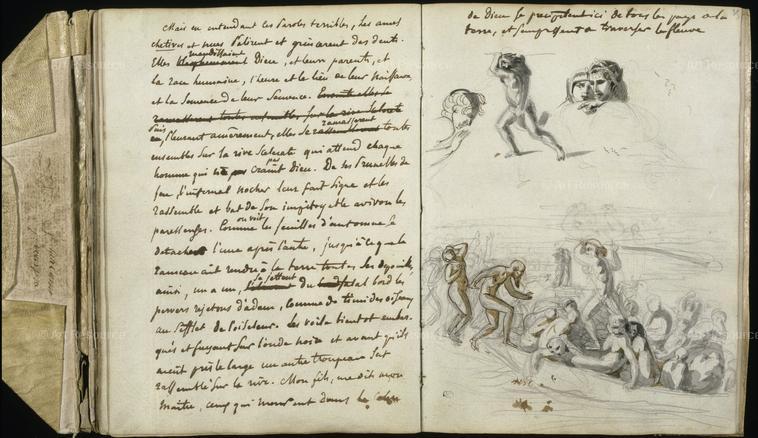 Mais en entendant ces Paroles terribles, les ames
chetives et nues Palirent et grincerent des dents.
Elles maudissaient Dieu, et leurs parents, et
la race humaine, l'heure et le lieu de leur naissance
et la Semence de leur Semence.
Puis, Pleurant amèrement, elles se ramasserent toutes
ensembles Sur la rive Scelerate qui attend chaque
homme qui ne craint pas Dieu. De ses Prunelles de
feu, l'infernal nocher leur fait Signe et les
rassemble et bat de Son impitoyable aviron les
paresseuses. Comme on voit les feuilles d'automne se
detacher l'une après l'autre, jusqu'à ce que le
rameau ait rendu à la terre toutes Ses depouilles,
ainsi, un a un, se jettent du fatal bord les
pervers rejetons d'adam, comme de timides oiseaux
au Sifflet de l'oiseleur. Les voila bientot embar-
qués et fuyant Sur l'onde noire et avant qu'ils
aient pris le large un autre troupeau Sest
rassemblé Sur la rive. Mon fils, me dit mon
Maitre, ceux qui meurent dans la Colere
de Dieu Se precipitent ici de tous les pays de la
terre, et s'empressent a traverser le fleuve
© Art Resource